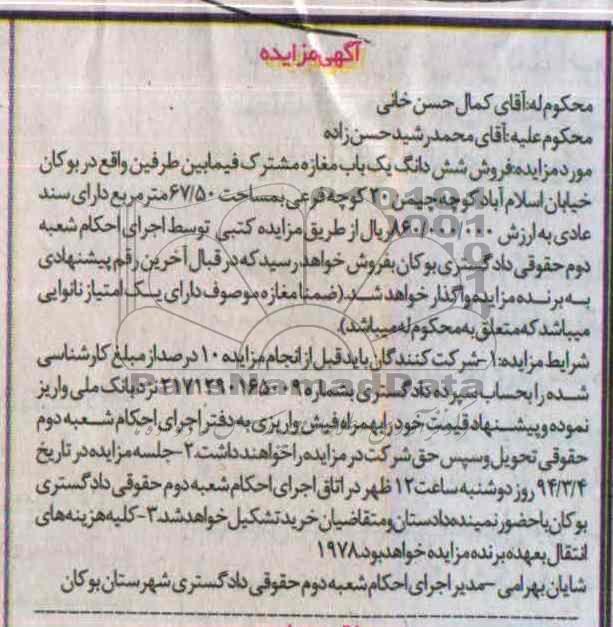 آگهی مزایده
محکوم له: آقای کمال حسن خانی
محکوم علیه: آقای محمد رشید حسن زاده
مورد مزایده: فروش شش دانگ یک باب مغازه مشترک فیمابین طرفین واقع در بوکان
خیابان اسلام آباد کوچه چیمن ۲۰ کوچه فرعی بمساحت ۶۷/۵۰ متر مربع دارای سند
عادی به ارزش ۸۶۰/۰۰۰/۰۰۰ ریال از طریق مزایده کتبی توسط اجرای احکام شعبه
دوم حقوقی دادگستری بوکان بفروش خواهد رسید که در قبال آخرین رقم پیشنهادی
به برنده مزایده واگذار خواهد شد. (ضمنا مغازه موصوف دارای یک امتیاز نانوایی
میباشد که متعلق به محکوم له میباشد).
شرایط مزایده: ۱- شرکت کنندگان باید قبل از انجام مزایده ۱۰ درصد از مبلغ کارشناسی
شده را بحساب سپرده دادگستری بشماره ۲۱۷۱۲۹۰۱۶۵۰۰۹ نزد بانک ملی واریز
نموده و پیشنهاد قیمت خود را بهمراه فیش واریزی به دفتر اجرای احکام شعبه دوم
حقوقی تحویل و سپس حق شرکت در مزایده را خواهند داشت. ۲- جلسه مزایده در تاریخ
۹۴/۳/۴ روز دوشنبه ساعت ۱۲ ظهر در اتاق اجرای احکام شعبه دوم حقوقی دادگستری
بوکان با حضور نمینده دادستان و متقاضیان خرید تشکیل خواهد شد. ۳- کلیه هزینه های
انتقال بعهده برنده مزایده خواهد بود. ۱۹۷۸
شایان بهرامی - مدیر اجرای احکام شعبه دوم حقوقی دادگستری شهرستان بوکان
ParsNamadData